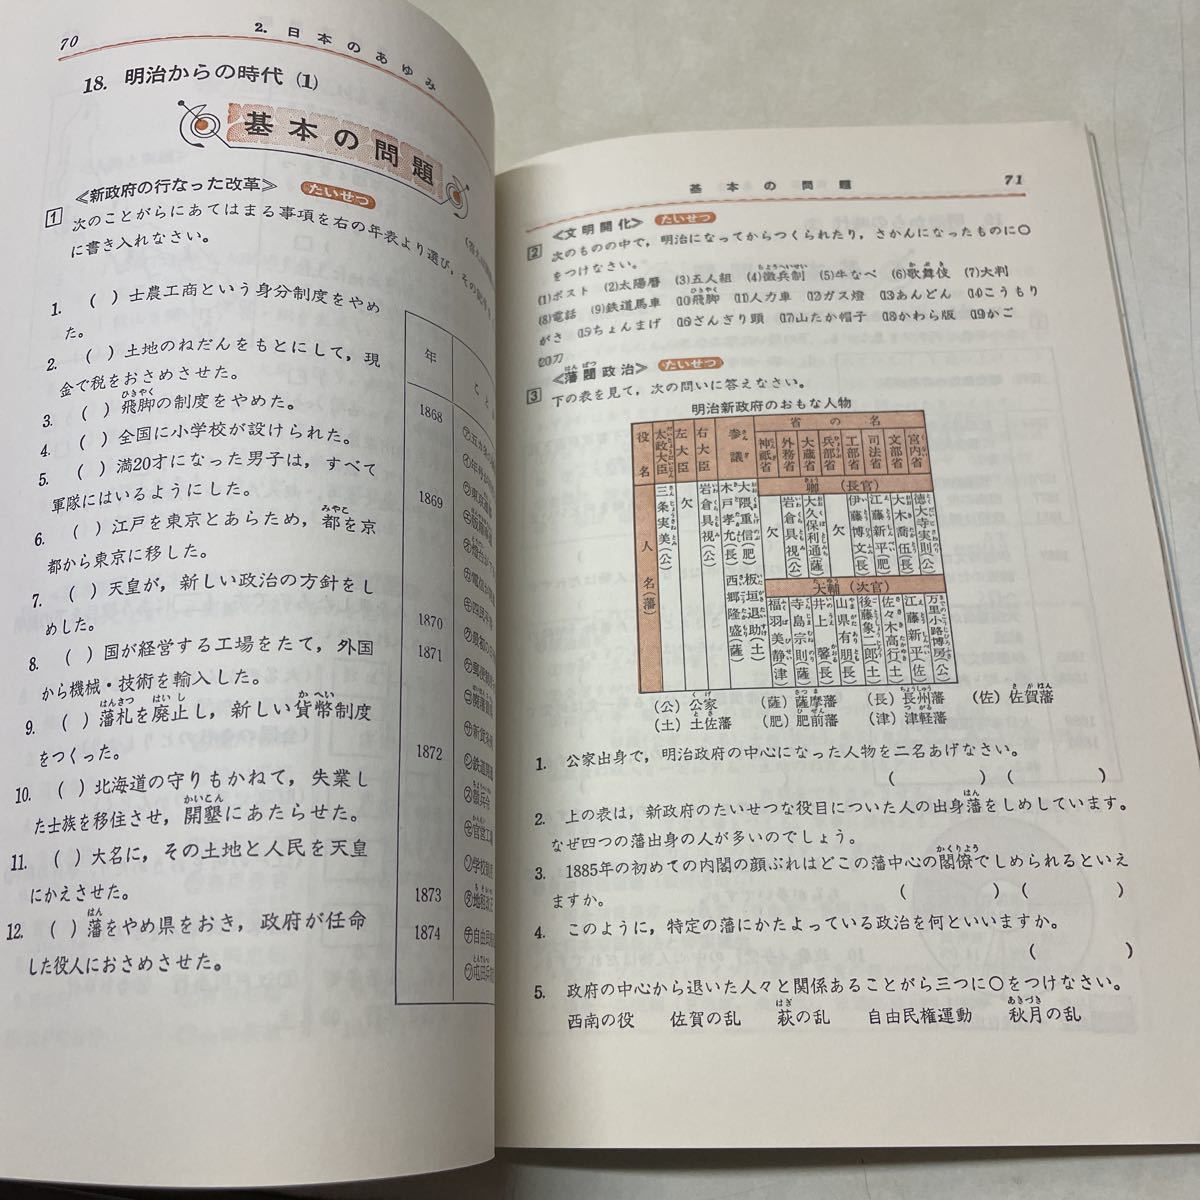 70
2. 日本のあゆみ
18. 明治からの時代 (1)
基本の問題
≪新政府の行なった改革≫ たいせつ
1 次のことがらにあてはまる事項を右の年表より選び，その記号を
に書き入れなさい。
1. ( ) 士農工商という身分制度をやめ
た。
2. ( ) 土地のねだんをもとにして，現
金で税をおさめさせた。
3. ( ) 飛脚の制度をやめた。
4. ( ) 全国に小学校が設けられた。
5. ( ) 満20才になった男子は，すべて
軍隊にはいるようにした。
6. ( ) 江戸を東京とあらため，都を京
都から東京に移した。
7. ( ) 天皇が，新しい政治の方針をし
めした。
8. ( ) 国が経営する工場をたて，外国
から機械・技術を輸入した。
9. ( ) 藩札を廃止し，新しい貨幣制度
をつくった。
10. ( ) 北海道の守りもかねて，失業し
た士族を移住させ，開墾にあたらせた。
11. ( ) 大名に，その土地と人民を天皇
にかえさせた。
12. ( ) 藩をやめ県をおき，政府が任命
した役人におさめさせた。
年
1868
1869
1870
1871
1872
1873
1874
基本の問題
71
≪文明開化≫ たいせつ
2 次のものの中で，明治になってからつくられたり，さかんになったものに〇
をつけなさい。
(1)ポスト (2)太陽暦 (3)五人組 (4)徴兵制 (5)牛なべ (6)歌舞伎 (7)大判
(8)電話 (9)鉄道馬車 (10)飛脚 (11)人力車 (12)ガス燈 (13)あんどん (14)こうもり
がさ (15)ちょんまげ (16)ざんぎり頭 (17)山たか帽子 (18)かわら版 (19)かご
(20)刀
≪藩閥政治≫ たいせつ
3 下の表を見て，次の問いに答えなさい。
明治新政府のおもな人物
役名 太政大臣 左大臣 右大臣 参議 省の名
神祇省 外務省 大蔵省 兵部省 工部省 司法省 文部省 宮内省
人名(藩) 三条実美(公) 欠 岩倉具視(公) 木戸孝允(長) 大隈重信(肥) 西郷隆盛(薩) 板垣退助(土)
卿(長官)
欠 岩倉具視(公) 大久保利通(薩) 欠 伊藤博文(長) 江藤新平(肥) 大木喬伍(長) 徳大寺実則(公)
大輔(次官)
福羽美静(津) 寺島宗則(薩) 井上馨(長) 山県有朋(長) 後藤象二郎(土) 佐々木高行(土) 江藤新平(佐) 万里小路博房(公)
(公) 公家 (薩) 薩摩藩 (長) 長州藩 (佐) 佐賀藩
(土) 土佐藩 (肥) 肥前藩 (津) 津軽藩
1. 公家出身で，明治政府の中心になった人物を二名あげなさい。
( ) ( )
2. 上の表は，新政府のたいせつな役目についた人の出身藩をしめしています。
なぜ四つの藩出身の人が多いのでしょう。
3. 1885年の初めての内閣の顔ぶれはどこの藩中心の閣僚でしめられるといえ
ますか。 ( ) ( )
4. このように，特定の藩にかたよっている政治を何といいますか。
( )
5. 政府の中心から退いた人々と関係あることがら三つに〇をつけなさい。
西南の役 佐賀の乱 萩の乱 自由民権運動 秋月の乱